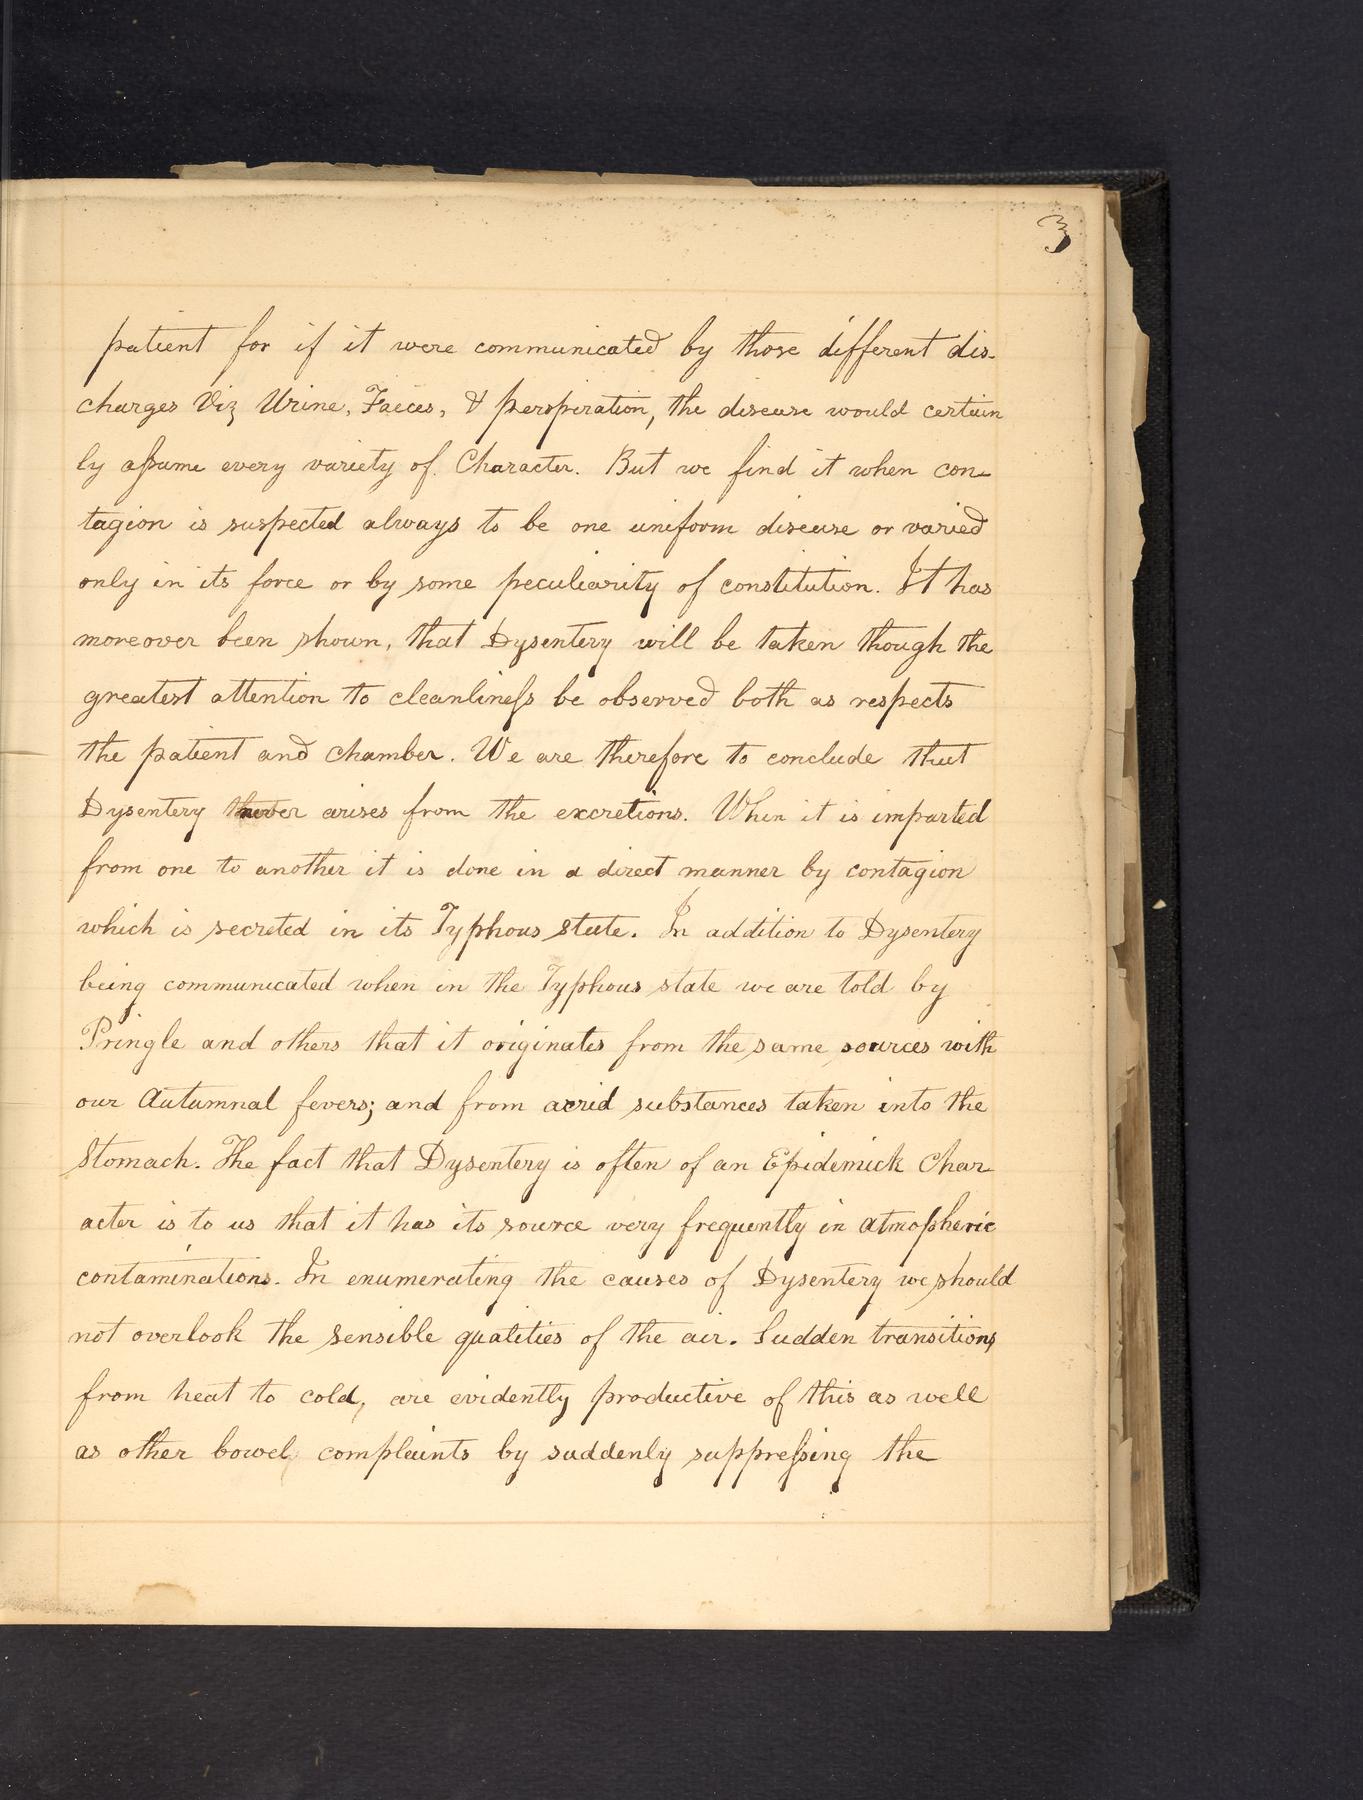 3
patient for if it were communicated by those different dis-
charges Viz Urine, Faeces, & perspiration, the disease would certain
ly assume every variety of Character. But we find it when con-
tagion is suspected always to be one uniform disease or varied
only in its force or by some peculiarity of constitution. It has
moreover been shown, that Dysentery will be taken though the
greatest attention to cleanliness be observed both as respects
the patient and chamber. We are therefore to conclude that
Dysentery never arises from the excretions. When it is imparted
from one to another it is done in a direct manner by contagion
which is secreted in its Typhous state. In addition to Dysentery
being communicated when in the Typhous state we are told by
Pringle and others that it originates from the same sources with
our Autumnal fevers; and from acrid substances taken into the
Stomach. The fact that Dysentery is often of an Epidemick Char
acter is to us that it has its source very frequently in atmospheric
contaminations. In enumerating the causes of Dysentery we should
not overlook the sensible qualities of the air. Sudden transitions
from heat to cold, are evidently productive of this as well
as other bowel complaints by suddenly suppressing the